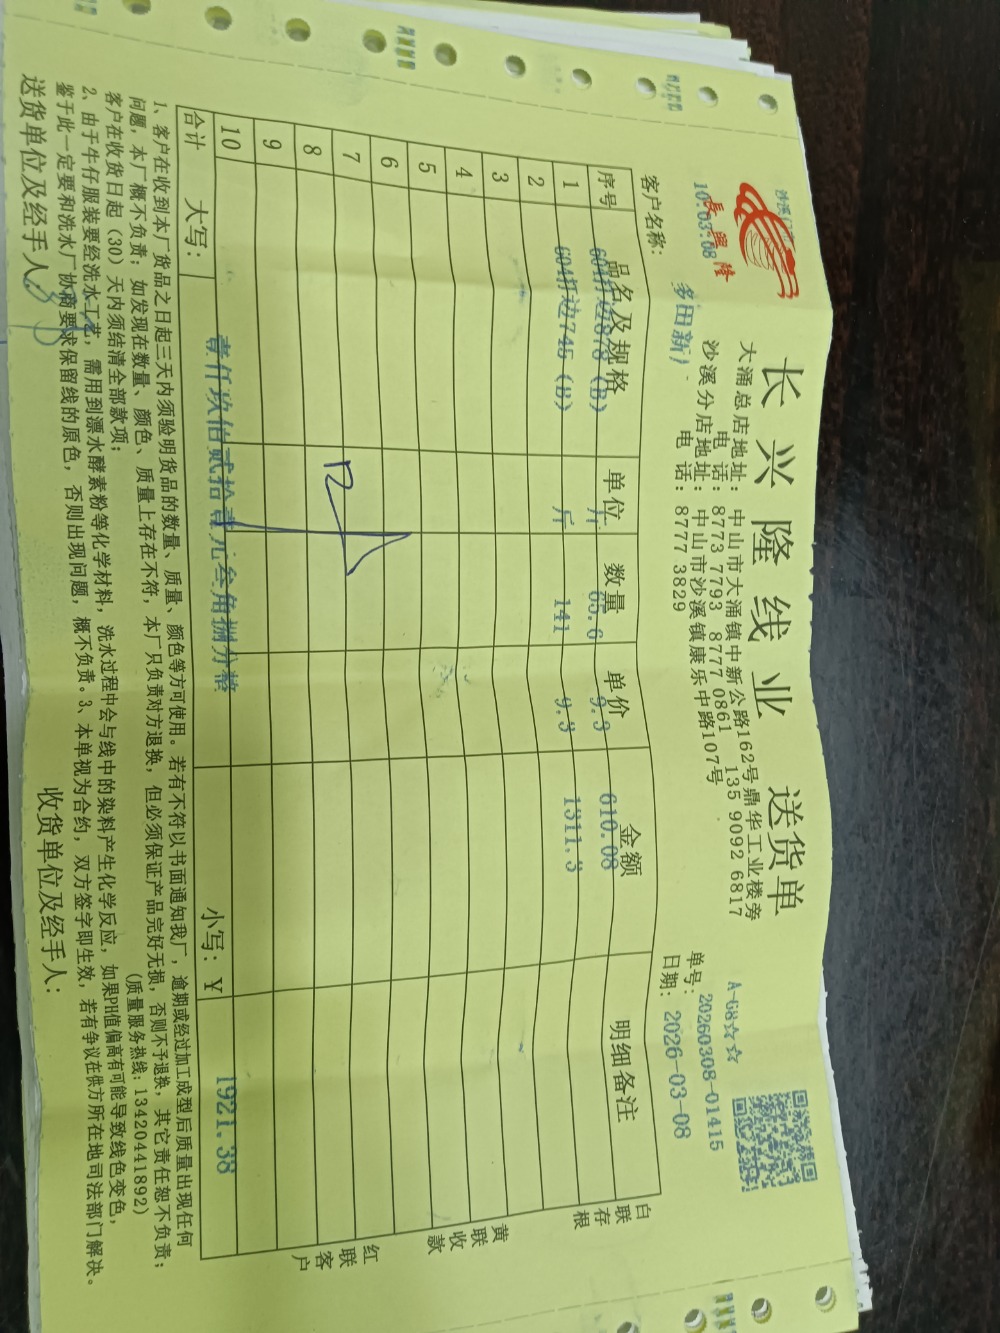 长兴隆线业 送货单
長興隆
10:03:08
大涌总店地址: 中山市大涌镇中新公路162号鼎华工业楼旁
电 话: 8773 7793 8777 0861 135 9092 6817
沙溪分店地址: 中山市沙溪镇康乐中路107号
电 话: 8777 3829
A-G8☆☆
单号: 20260308-01415
客户名称: 多田新)
日期: 2026-03-08
序号 品名及规格 单位 数量 单价 金额 明细备注
1 604打边878 (B) 斤 65.6 9.3 610.08
2 604打边745 (B) 斤 141 9.3 1311.3
3
4
5
6
7
8
9
10
合计 大写: 壹仟玖佰贰拾壹元叁角捌分整 小写: ¥ 1921.38
白联存根
黄联收款
红联客户
1、客户在收到本厂货品之日起三天内须验明货品的数量、质量、颜色等方可使用。若有不符以书面通知我厂, 逾期或经过加工成型后质量出现任何
问题, 本厂概不负责; 如发现在数量、颜色、质量上存在不符, 本厂只负责对方退换, 但必须保证产品完好无损, 否则不予退换, 其它责任恕不负责;
客户在收货日起 (30) 天内须结清全部款项; (质量服务热线: 13420441892)
2、由于牛仔服装要经洗水工艺, 需用到漂水酵素粉等化学材料, 洗水过程中会与线中的染料产生化学反应, 如果PH值偏高有可能导致线色变色,
鉴于此一定要和洗水厂协商要求保留线的原色, 否则出现问题, 概不负责。3、本单视为合约, 双方签字即生效, 若有争议在供方所在地司法部门解决。
送货单位及经手人: 收货单位及经手人: